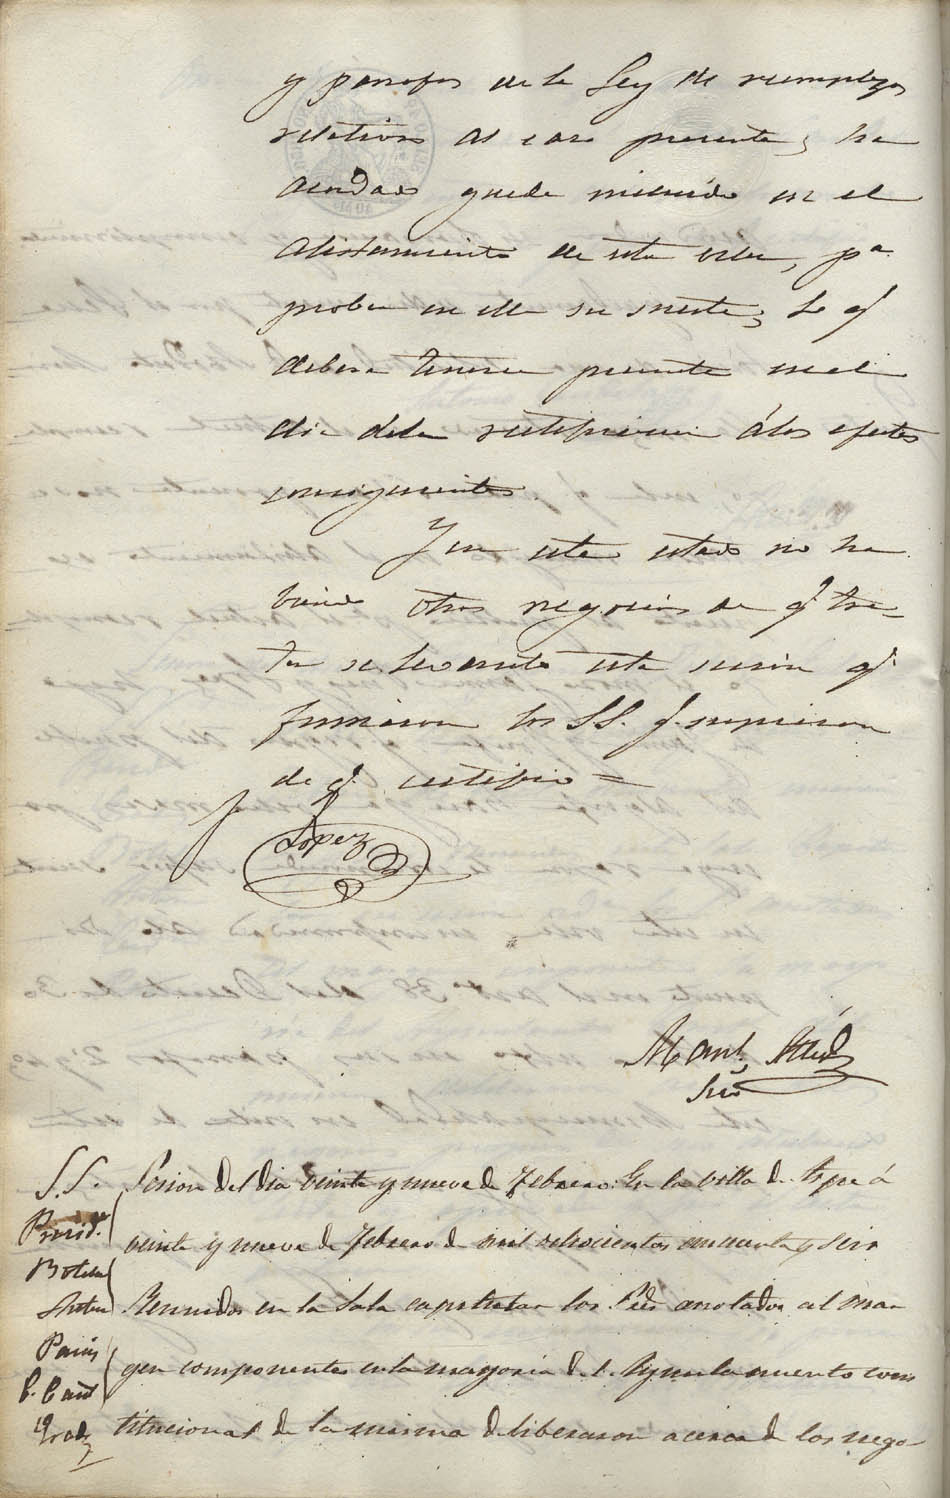 y parrafos de la Ley de reemplazos
relativos al caso presente, ha
acordado quede incluido en el
alistamiento de esta villa, pª
probar en ella su suerte; lo q.
debera tenerse presente en el
dia dela rectificacion álos efectos
consiguientes.
Y en este estado no ha
biendo otros negocios de q. tra-
tar se levantó esta sesion q.
firmaron los SS. q. supieron
de q. certifico =
Lopez
Manl.
Srio
S.S. Sesion del dia veinte y nueve de Febrero: En la villa de á
Presid.te veinte y nueve de Febrero de mil ochocientos cincuenta y seis
Reunidos en la Sala capitular los Sres anotados al mar
gen componentes en la mayoria del Ayuntamiento cons
titucional de la misma deliberaron acerca de los nego